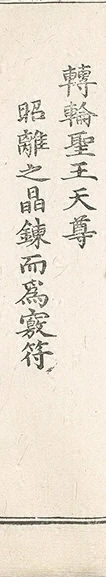 轉輪聖王天尊
昭離之晶鍊而爲竅符